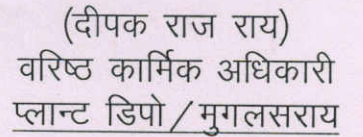 (दीपक राज राय)
वरिष्ठ कार्मिक अधिकारी
प्लान्ट डिपो / मुगलसराय